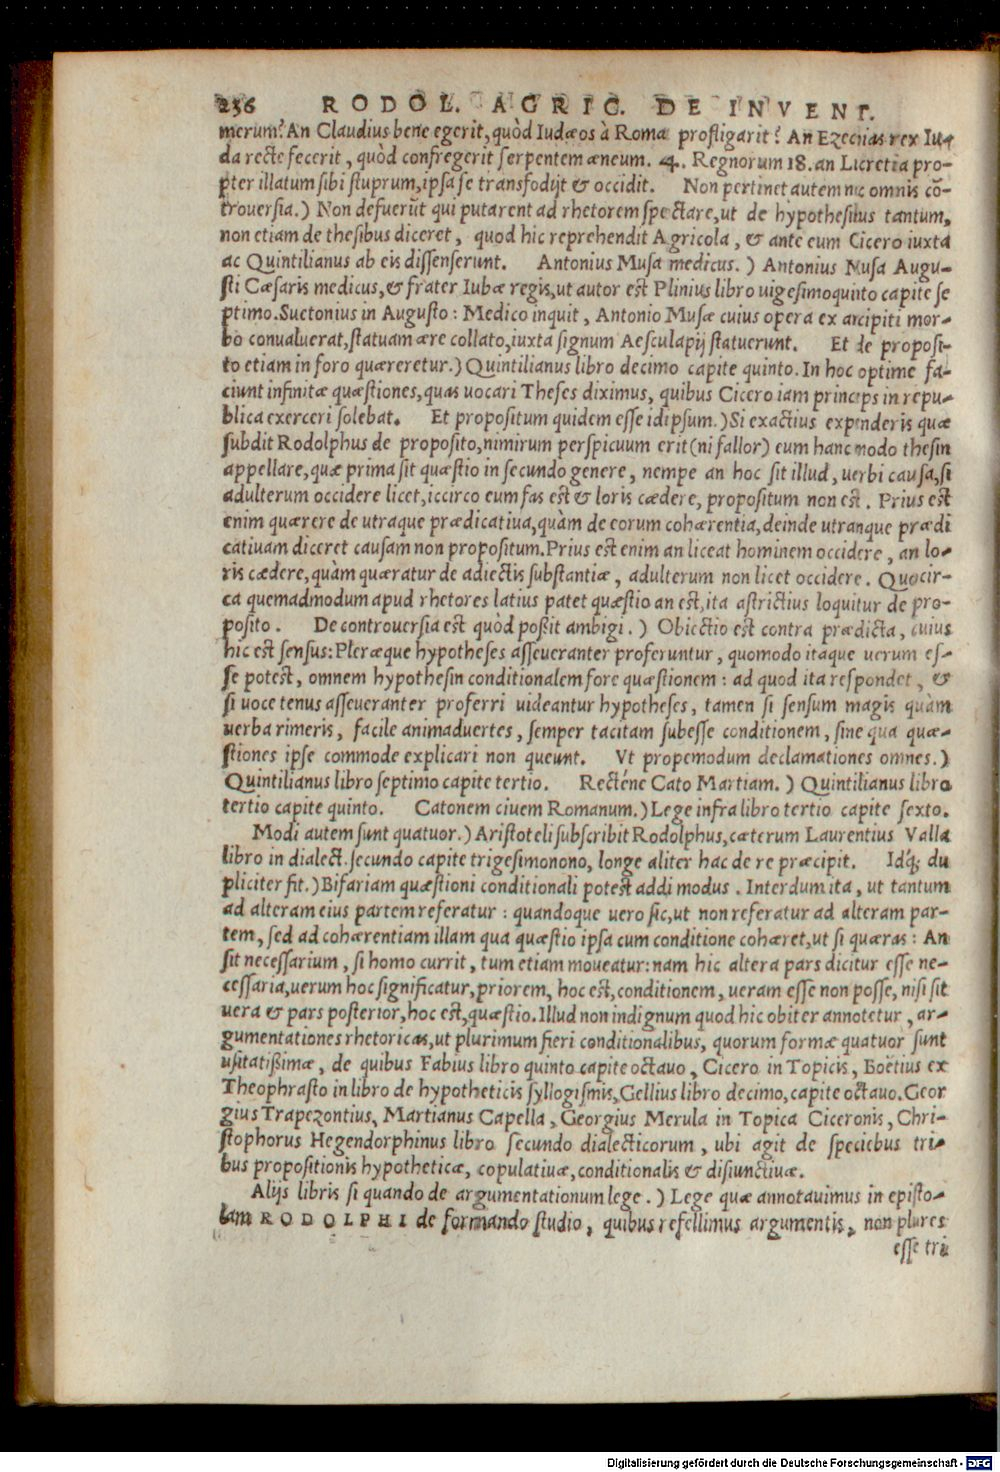 236 RODOL. AGRIC. DE INVENT.
merum? An Claudius bene egerit, quòd Iudæos à Roma profligarit? An Ezecias rex Iu-
da recte fecerit, quòd confregerit serpentem æneum. 4. Regnorum 18. an Lucretia pro-
pter illatum sibi stuprum, ipsa se transfodijt & occidit. Non pertinet autem nũc omnis cõ-
trouersia.) Non defuerũt qui putarent ad rhetorem spectare, ut de hypothesibus tantum,
non etiam de thesibus diceret, quod hic reprehendit Agricola, & ante eum Cicero iuxta
ac Quintilianus ab eis dissenserunt. Antonius Musa medicus.) Antonius Musa Augu-
sti Cæsaris medicus, & frater Iubæ regis, ut autor est Plinius libro uigesimoquinto capite se
ptimo. Suctonius in Augusto: Medico inquit, Antonio Musæ cuius opera ex ancipiti mor-
bo conualuerat, statuam ære collato, iuxta signum Aesculapij statuerunt. Et de proposi-
to etiam in foro quæreretur.) Quintilianus libro decimo capite quinto. In hoc optime fa-
ciunt infinitæ quæstiones, quas uocari Theses diximus, quibus Cicero iam princeps in repu-
blica exerceri solebat. Et propositum quidem esse id ipsum.) Si exactius expenderis quæ
subdit Rodolphus de proposito, nimirum perspicuum erit (ni fallor) eum hanc modo thesin
appellare, quæ prima sit quæstio in secundo genere, nempe an hoc sit illud, uerbi causa, si
adulterum occidere licet, iccirco eum fas est & loris cædere, propositum non est. Prius est
enim quærere de utraque prædicatiua, quàm de eorum cohærentia, deinde utranque prædi
catiuam diceret causam non propositum. Prius est enim an liceat hominem occidere, an lo-
ris cædere, quàm quæratur de adiectis substantiæ, adulterum non licet occidere. Quocir-
ca quemadmodum apud rhetores latius patet quæstio an est, ita astrictius loquitur de pro-
posito. De controuersia est quòd possit ambigi.) Obiectio est contra prædicta, cuius
hic est sensus: Pleræque hypotheses asseueranter proferuntur, quomodo itaque uerum es-
se potest, omnem hypothesin conditionalem fore quæstionem: ad quod ita respondet, &
si uoce tenus asseueranter proferri uideantur hypotheses, tamen si sensum magis quàm
uerba rimeris, facile animaduertes, semper tacitam subesse conditionem, sine qua quæ-
stiones ipse commode explicari non queunt. Vt propemodum declamationes omnes.)
Quintilianus libro septimo capite tertio. Recténe Cato Martiam.) Quintilianus libro
tertio capite quinto. Catonem ciuem Romanum.) Lege infra libro tertio capite sexto.
Modi autem sunt quatuor.) Aristoteli subscribit Rodolphus, cæterum Laurentius Valla
libro in dialect. secundo capite trigesimonono, longe aliter hac de re præcipit. Idq́; du
pliciter fit.) Bifariam quæstioni conditionali potest addi modus. Interdum ita, ut tantum
ad alteram eius partem referatur: quandoque uero sic, ut non referatur ad alteram par-
tem, sed ad cohærentiam illam qua quæstio ipsa cum conditione cohæret, ut si quæras: An
sit necessarium, si homo currit, tum etiam moueatur: nam hic altera pars dicitur esse ne-
cessaria, uerum hoc significatur, priorem, hoc est, conditionem, ueram esse non posse, nisi sit
uera & pars posterior, hoc est, quæstio. Illud non indignum quod hic obiter annotetur, ar-
gumentationes rhetoricas, ut plurimum fieri conditionalibus, quorum formæ quatuor sunt
usitatißimæ, de quibus Fabius libro quinto capite octauo, Cicero in Topicis, Boëtius ex
Theophrasto in libro de hypotheticis syllogismis, Gellius libro decimo, capite octauo. Geor
gius Trapezontius, Martianus Capella, Georgius Merula in Topica Ciceronis, Chri-
stophorus Hegendorphinus libro secundo dialecticorum, ubi agit de speciebus tri-
bus propositionis hypotheticæ, copulatiuæ, conditionalis & disiunctiuæ.
Alijs libris si quando de argumentationum lege.) Lege quæ annotauimus in episto-
lam RODOLPHI de formando studio, quibus refellimus argumentis, non plures
esse tri
Digitalisierung gefördert durch die Deutsche Forschungsgemeinschaft - DFG